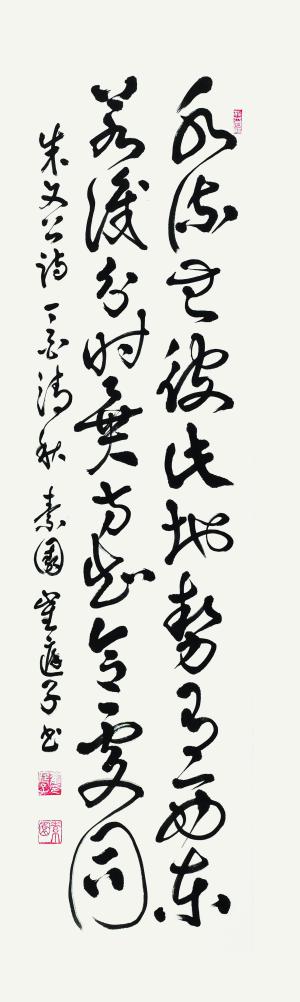 水流無彼此地勢有西東
若識分時異方知合處同
朱文公詩 丁酉清秋 素園 崔庭子書